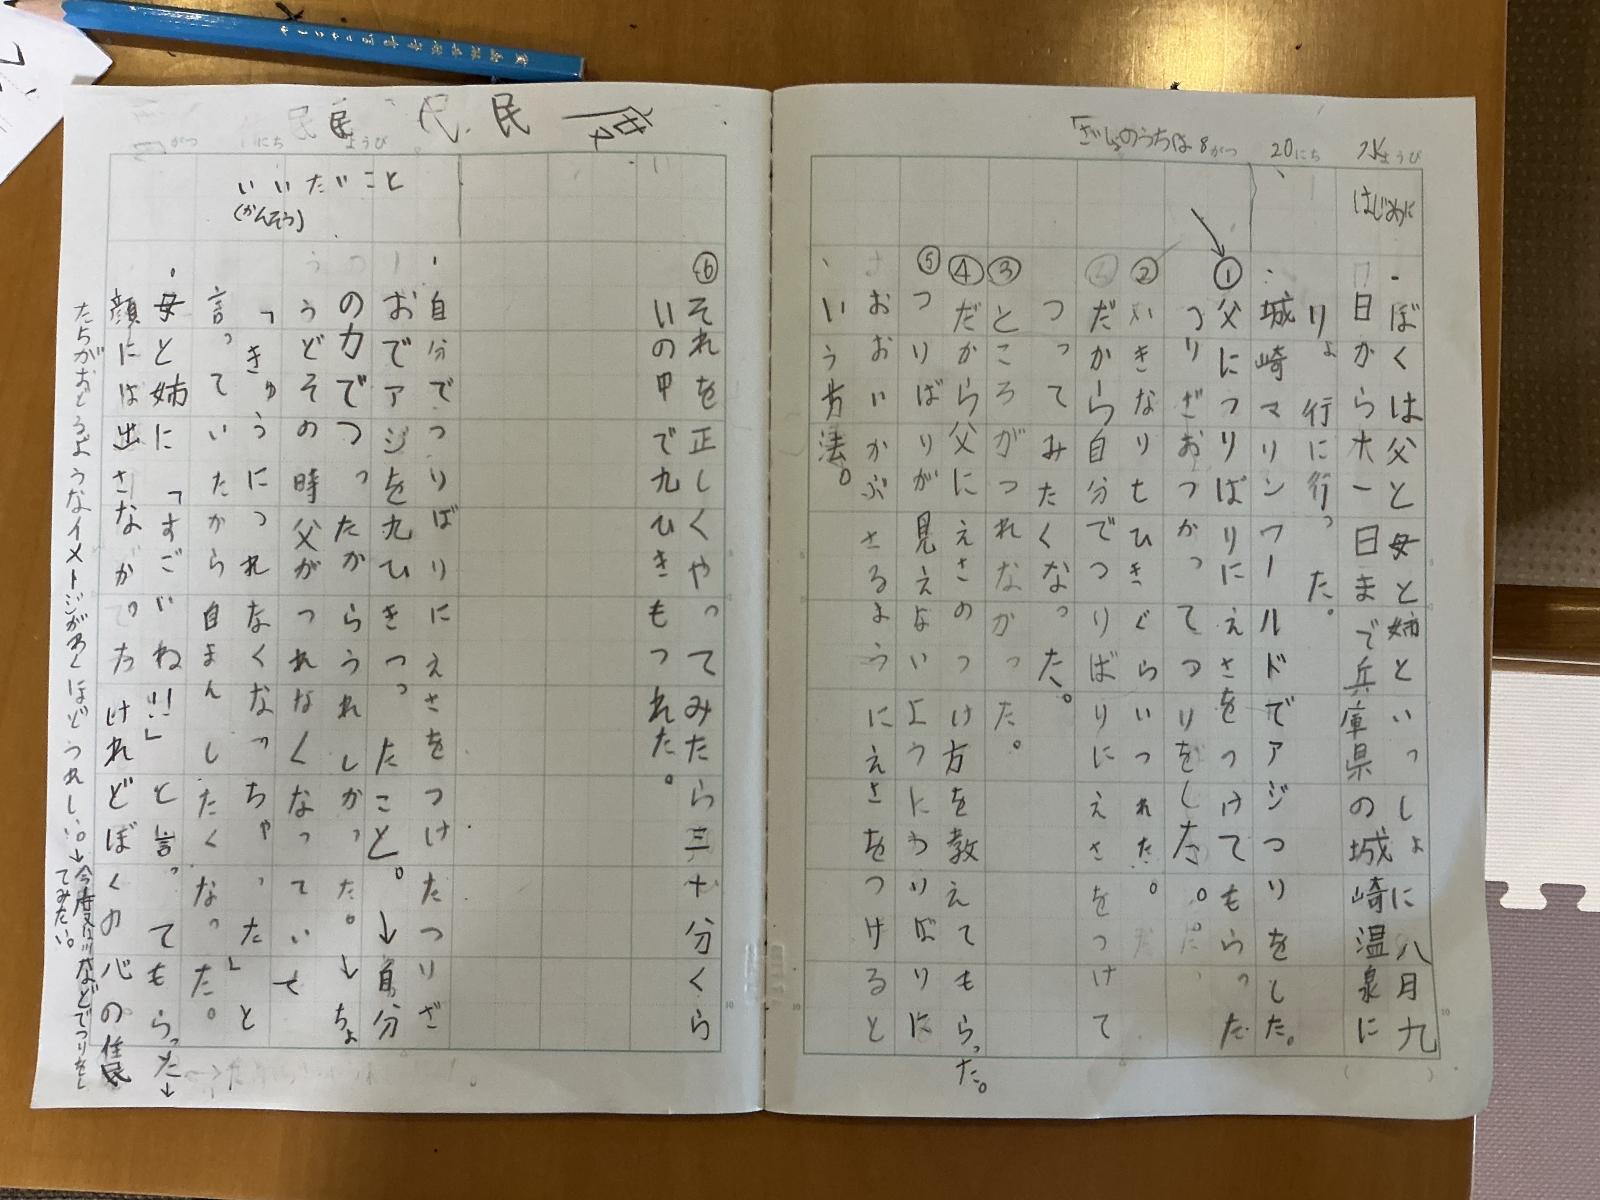 8がつ 20にち 水ようび
はじめに
・ぼくは父と母と姉といっしょに八月九
日から十一日まで兵庫県の城崎温泉に
りょ行に行った。
・城崎マリンワールドでアジつりをした。
①父につりばりにえさをつけてもらった
つりざおつかってつりをした。
②いきなり七ひきぐらいつれた。
だから自分でつりばりにえさをつけて
つってみたくなった。
③ところがつれなかった。
④だから父にえさのつけ方を教えてもらった。
⑤つりばりが見えないようにつりばりに
おおいかぶさるようにえさをつけると
いう方法。
民 民 民 民
がつ にち ようび
⑥それを正しくやってみたら三十分くら
いの中で九ひきもつれた。
いいたいこと
(かんそう)
・自分でつりばりにえさをつけたつりざ
おでアジを九ひきつったこと。→自分
の力でつったからうれしかった。→ちょ
うどその時父がつれなくなっていて
「きゅうにつれなくなっちゃった」と
言っていたから自まんしたくなった。
・母と姉に「すごいね!!」と言ってもらった→
顔には出さなかったけれどぼくの心の住民
たちがおどるようなイメージがわくほどうれしい。→今度は川などでつりをし
てみたい。